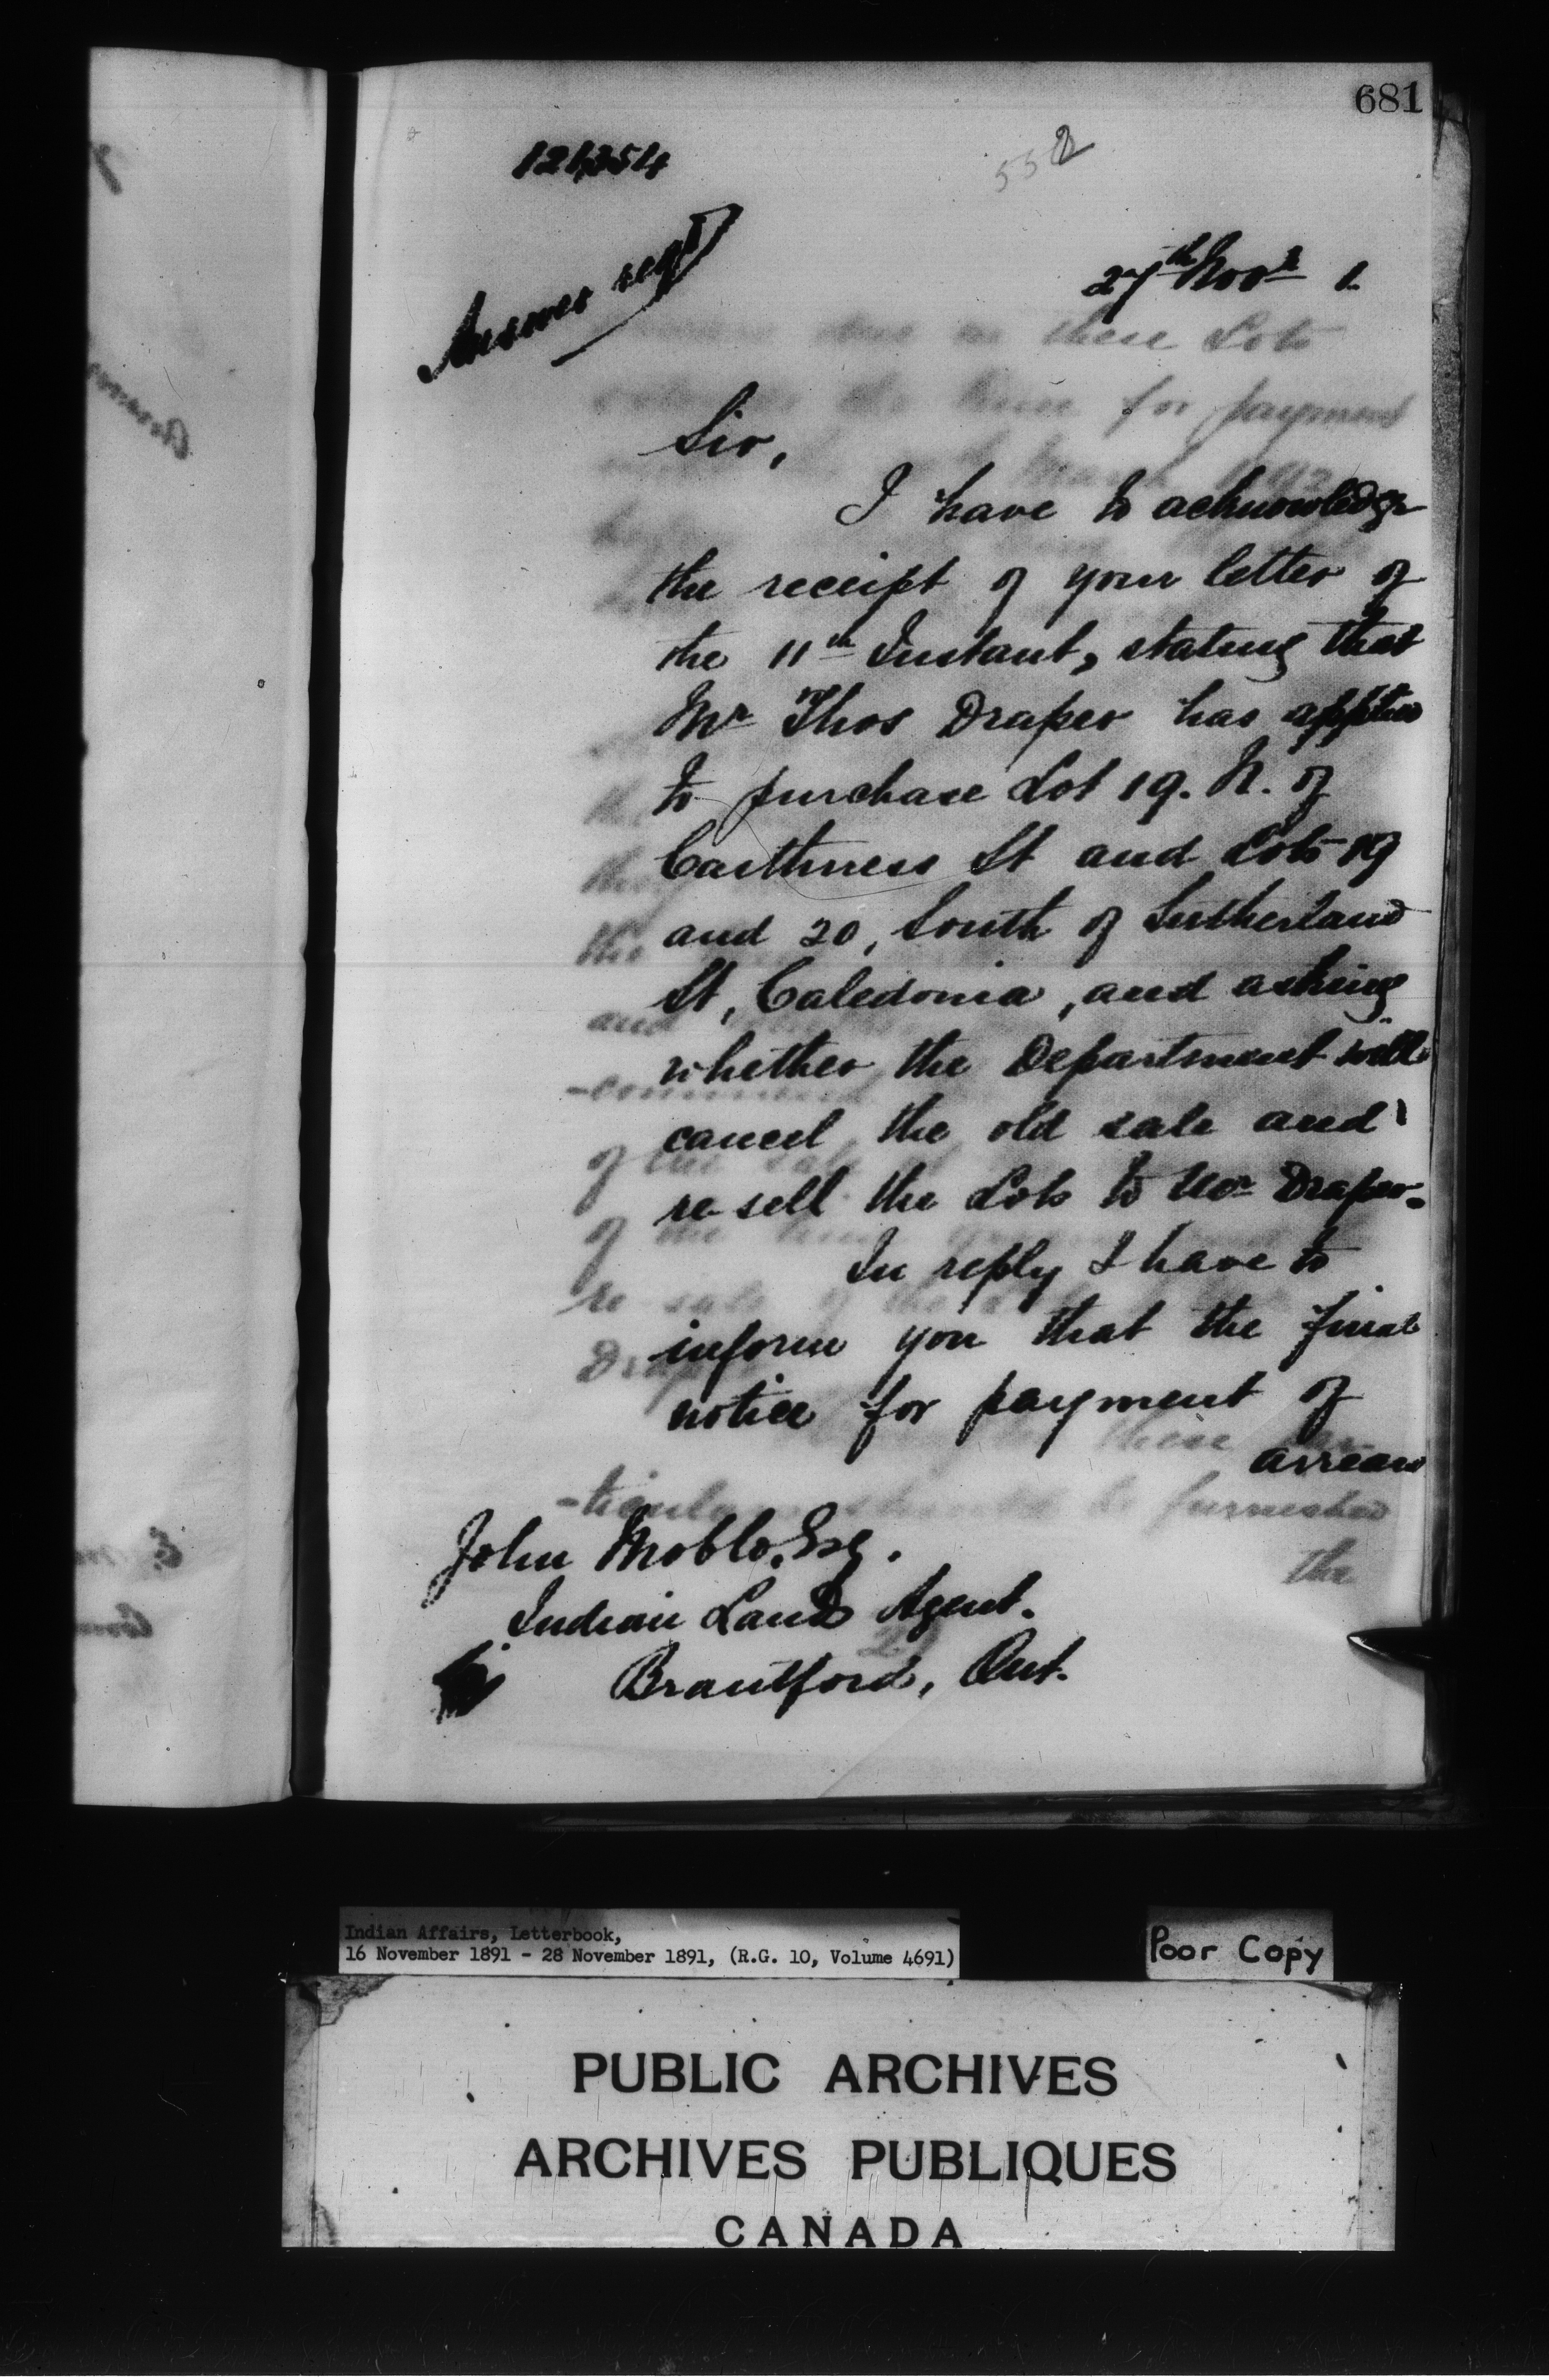 681
121,354
552
Answer reqd
27th Novr 1.
Sir,
I have to acknowledge
the receipt of your letter of
the 11th Instant, stating that
Mr Thos Draper has applied
to purchase Lot 19. N. of
Caithness St and Lots 19
and 20, South of Sutherland
St, Caledonia, and asking
whether the Department will
cancel the old sale and
re-sell the Lots to Mr Draper.
In reply I have to
inform you that the final
notice for payment of
arrears
John Esq.
Indian Land Agent.
Brantford, Ont.
Indian Affairs, Letterbook,
16 November 1891 - 28 November 1891, (R.G. 10, Volume 4691)
Poor Copy
PUBLIC ARCHIVES
ARCHIVES PUBLIQUES
CANADA